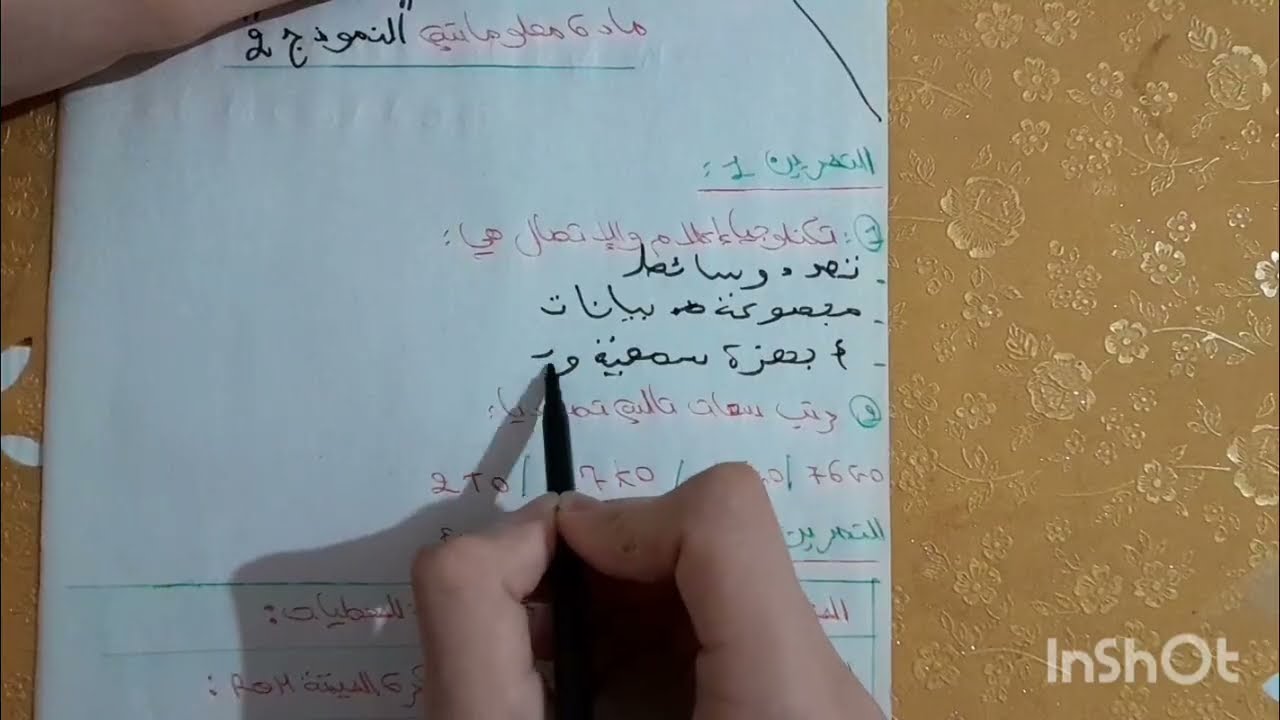 مادة معلوماتية "النموذج 2"
التمرين 1:
1: تكنلوجيا إعلام والإتصال هي:
- تعدد وسائط
- مجموعة من بيانات
- أجهزة سمعية
2 رتب سعات تالية
2 TO / 7 KO / 76 GO
التمرين
للمعطيات:
الميتة ROM:
InShOt